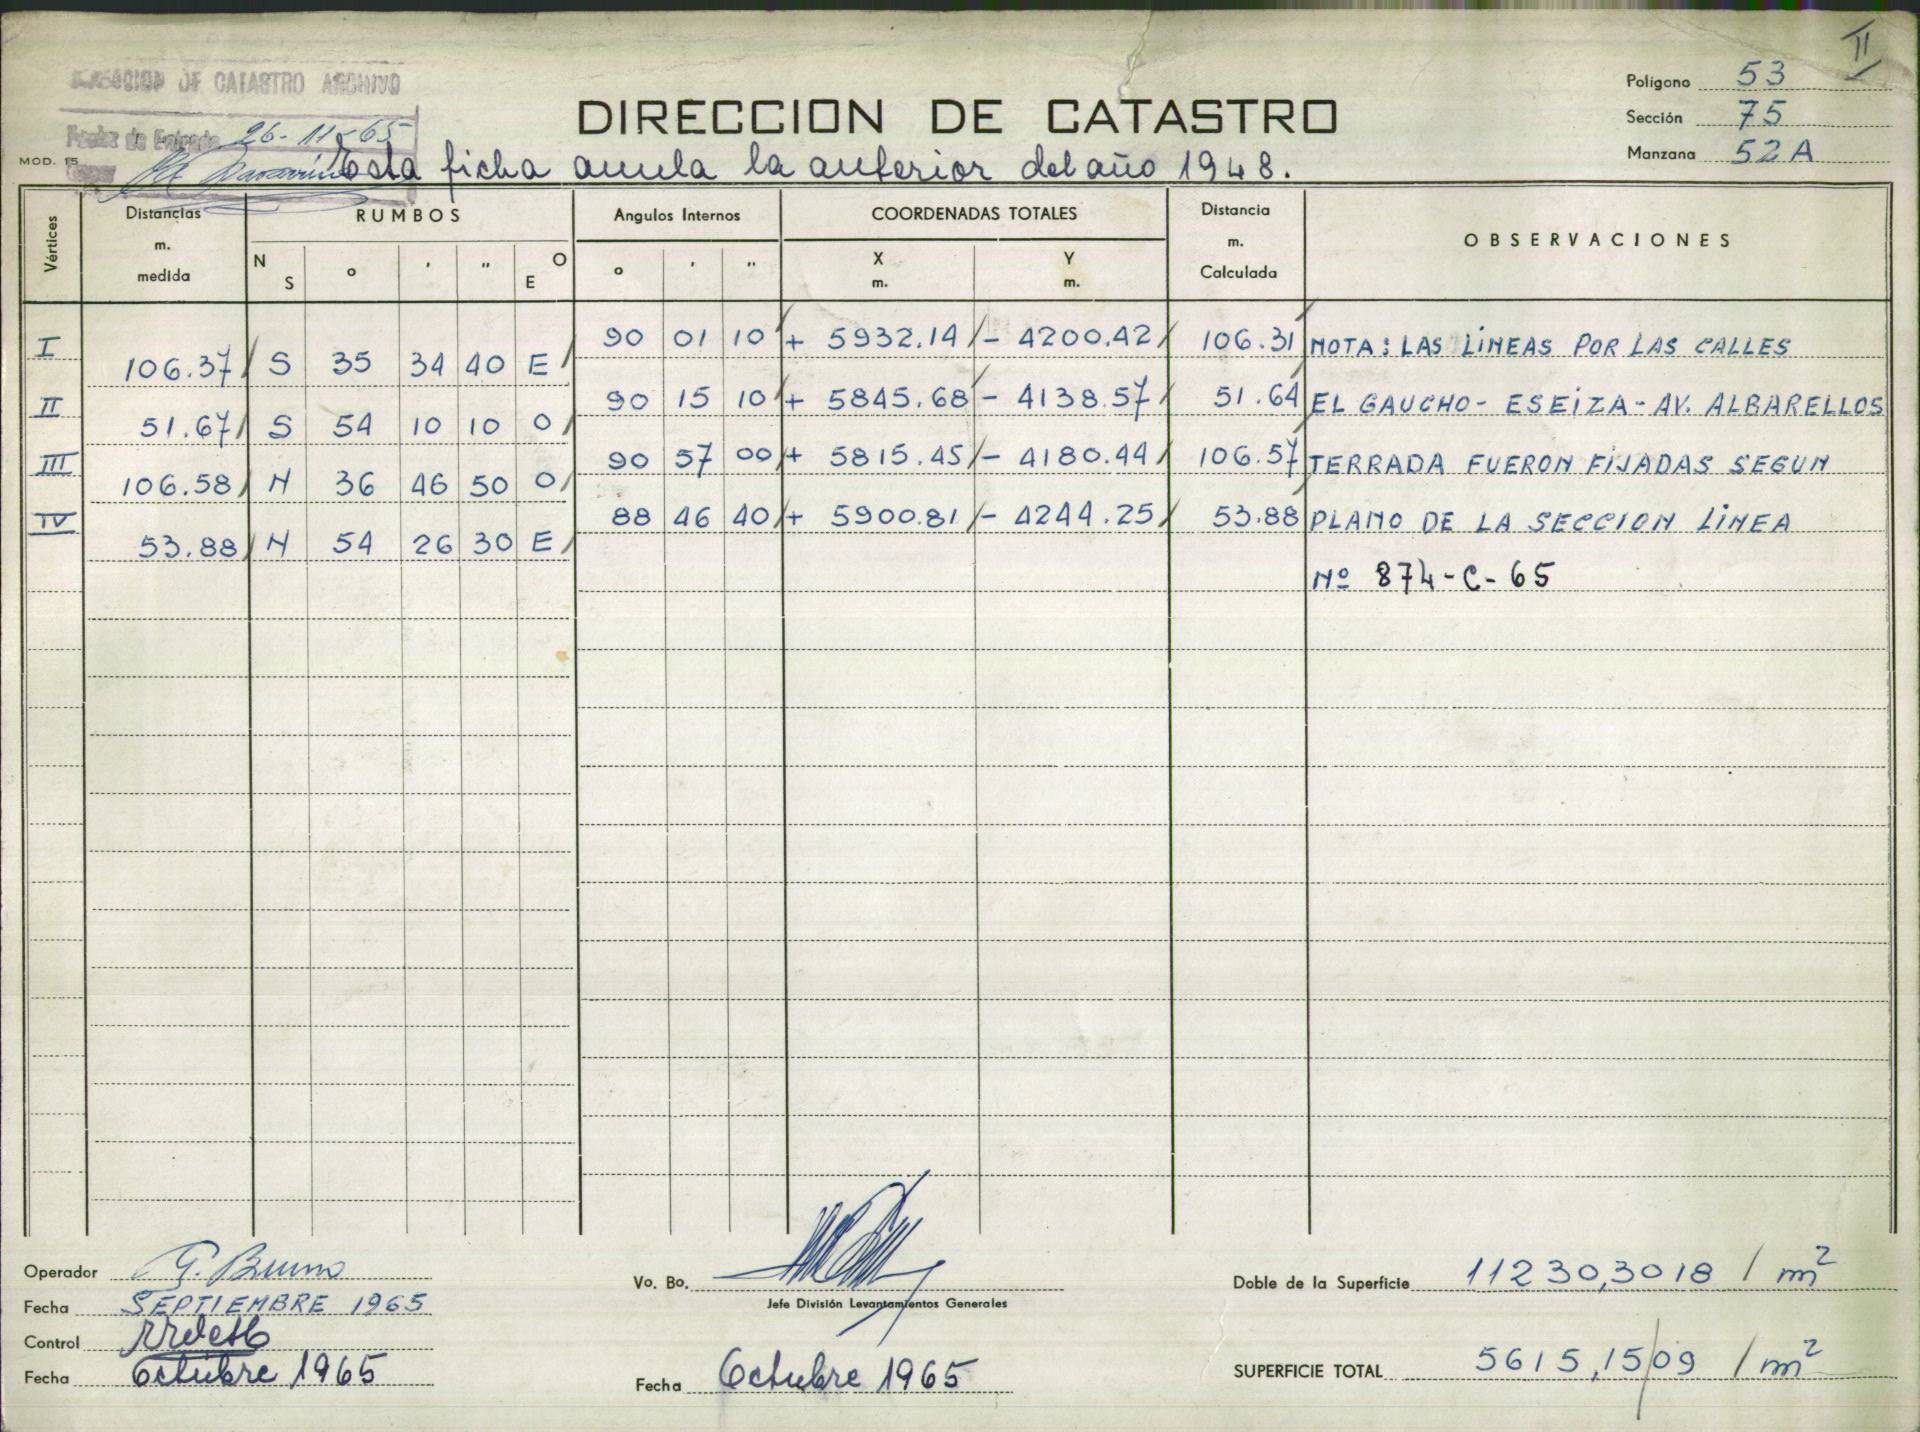 II
DIRECCION DE CATASTRO ARCHIVO
Fecha de Entrada 26-11-65
MOD. 15
DIRECCION DE CATASTRO
Esta ficha anula la anterior del año 1948.
Polígono 53
Sección 75
Manzana 52A
Vértices Distancias m. medida RUMBOS Angulos Internos COORDENADAS TOTALES Distancia m. Calculada OBSERVACIONES
N S o ' " O E o ' " X m. Y m.
I 90 01 10 + 5932.14 - 4200.42 106.31 NOTA: LAS LINEAS POR LAS CALLES
106.37 S 35 34 40 E
II 90 15 10 + 5845.68 - 4138.57 51.64 EL GAUCHO - ESEIZA - AV. ALBARELLOS
51.67 S 54 10 10 O
III 90 57 00 + 5815.45 - 4180.44 106.57 TERRADA FUERON FIJADAS SEGUN
106.58 N 36 46 50 O
IV 88 46 40 + 5900.81 - 4244.25 53.88 PLANO DE LA SECCION LINEA
53.88 N 54 26 30 E
Nº 874-C-65
Operador G. Bruno
Fecha SEPTIEMBRE 1965
Control
Fecha Octubre 1965
Vo. Bo.
Jefe División Levantamientos Generales
Fecha Octubre 1965
Doble de la Superficie 11230,3018 / m²
SUPERFICIE TOTAL 5615,1509 / m²